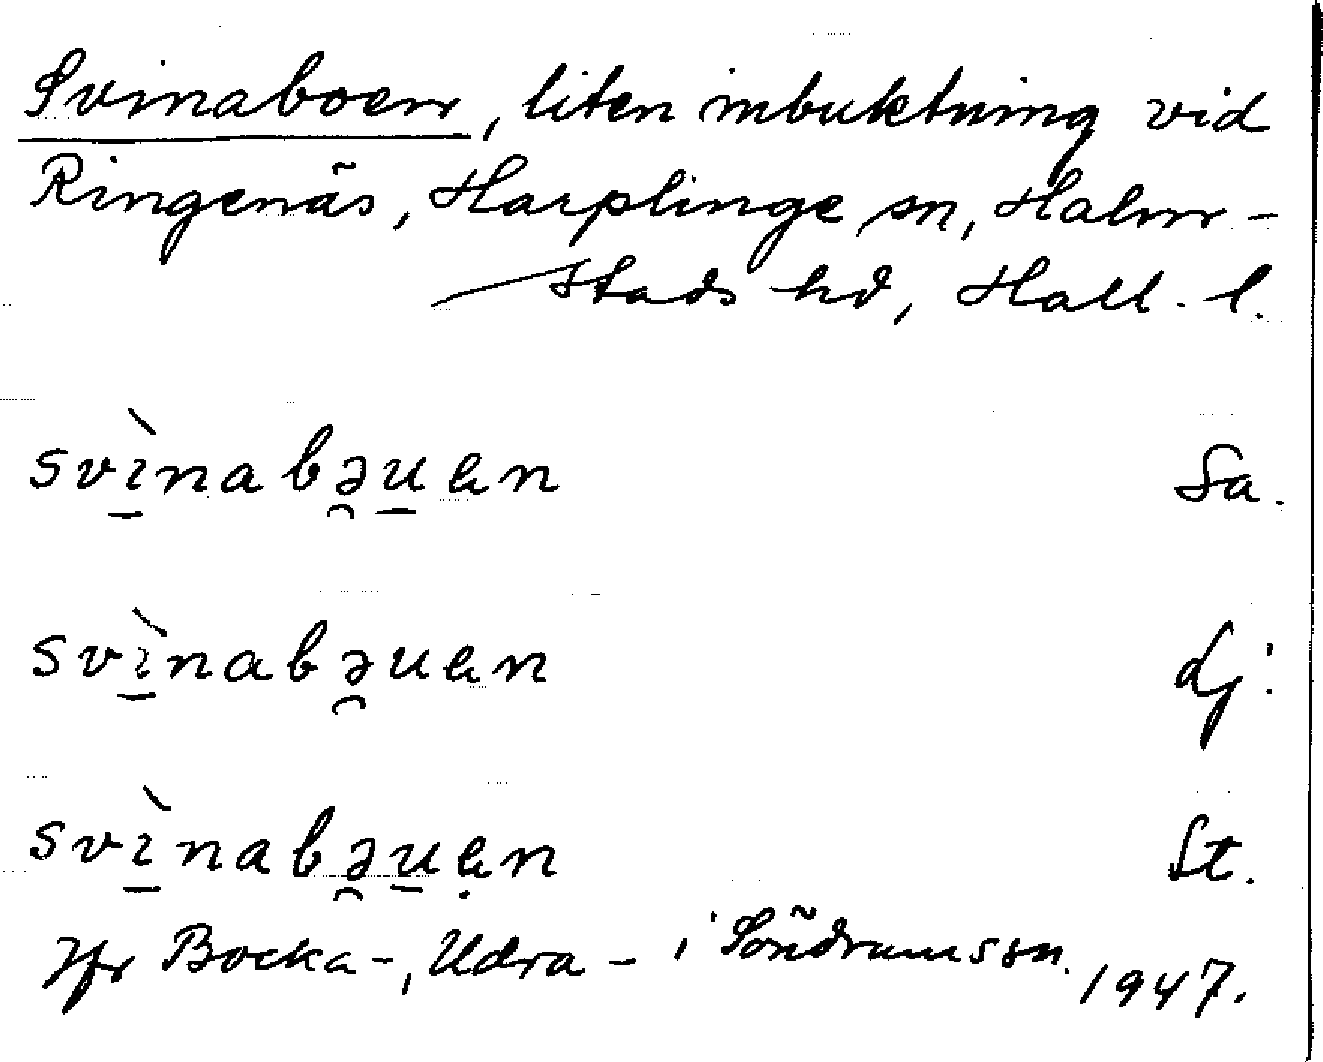 Svinaboen, liten inbuktning vid
Ringenäs, Harplinge sn, Halm-
stads hd, Hall. l.
svı̱̀nabə̯u̱ɐn Sa.
svı̱̀nabə̯uɐn dj:
svı̱̀nabə̯u̱ɐ̣n St.
Jfr Bocka-, Udra- i Söndrums sn. 1947.